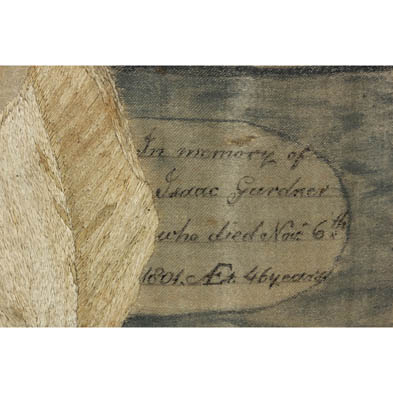 In memory of
Isaac Gardner
who died Nov. 6th
1801. Æt. 46 years